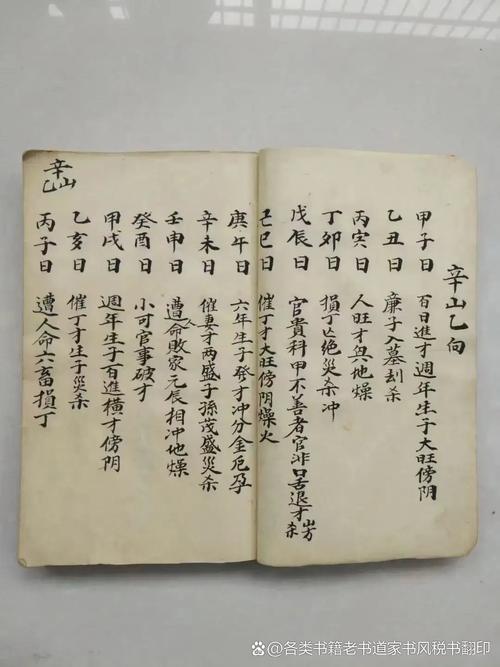 辛山乙向
甲子日 百日進才週年生子大旺傍阴
乙丑日 廉子入墓刦杀
丙寅日 人旺才兴地燥
丁夘日 損丁亡绝災杀冲
戊辰日 官貴科甲不善者官非口舌退才山方杀
己巳日 催丁才大旺傍阴燥火
庚午日 六年生子發才冲分金厄孕
辛未日 催妻才两盛子孫茂盛災杀
壬申日 遭人命敗家元辰相冲地燥
癸酉日 小可官事破才
甲戌日 週年生子百進横才傍阴
乙亥日 催丁才生子災杀
丙子日 遭人命六畜損丁
辛山乙
@各类书籍老书道家书风税书翻印